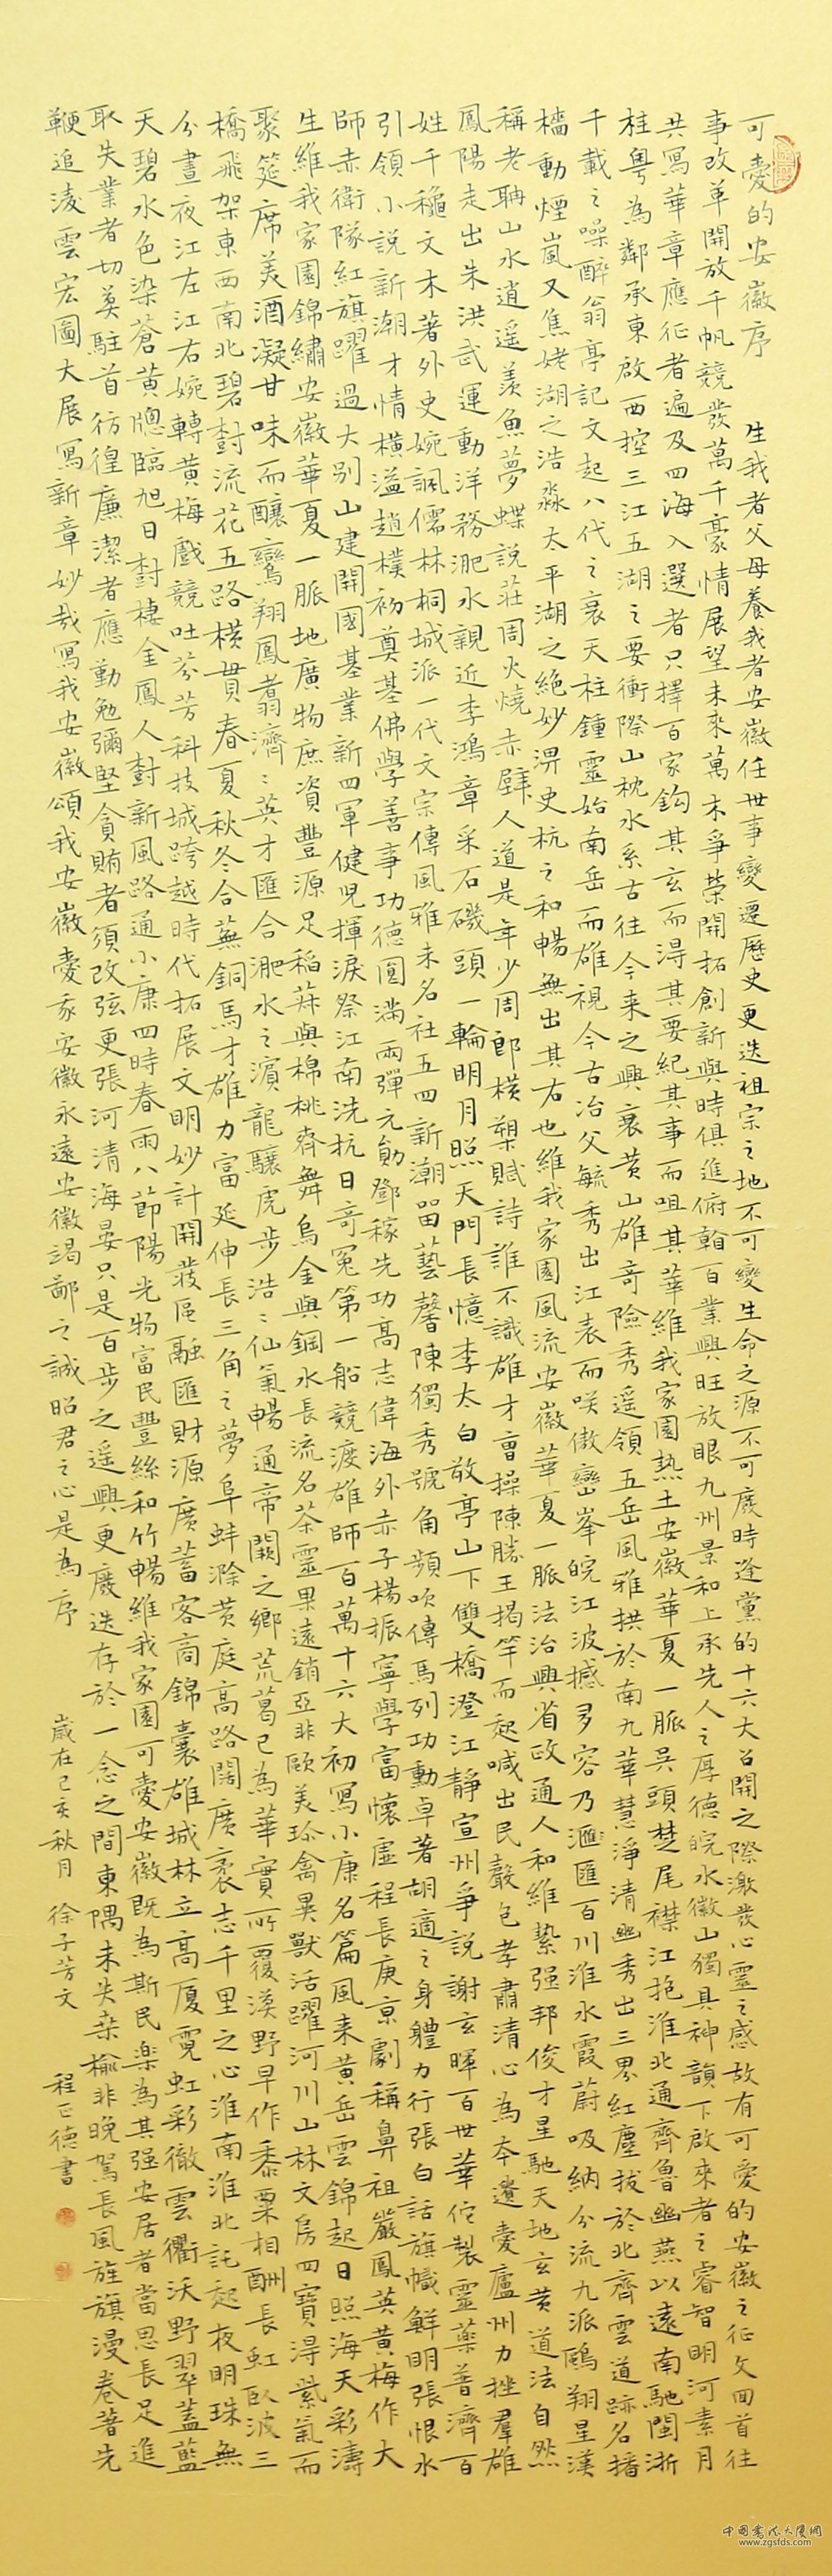 可愛的安徽序　生我者父母養我者安徽任世事變遷歷史更迭祖宗之地不可變生命之源不可廢時逢黨的十六大召開之際激發心靈之感故有可愛的安徽之征文回首往
事改革開放千帆競發萬千豪情展望未來萬木爭榮開拓創新與時俱進俯翰百業興旺放眼九州景和上承先人之厚德皖水徽山獨具神韻下啟來者之睿智明河素月
共寫華章應征者遍及四海入選者只擇百家鈎其玄而得其要紀其事而咀其華維我家園熱土安徽華夏一脈吳頭楚尾襟江抱淮北通齊魯幽燕以遠南馳閩浙
柱粵為鄰承東啟西控三江五湖之要衝際山枕水系古往今来之興衰黄山雄奇險秀遥領五岳風雅拱於南九華慧淨清幽秀出三界紅塵拔於北齊雲道跡名播
千載之噪醉翁亭記文起八代之衰天柱鍾靈始南岳而雄視今古冶父毓秀出江表而咲傲巒峯皖江波撼多容乃滙匯百川淮水霞蔚吸納分流九派鷗翔星漢
檣動煙嵐又焦姥湖之浩淼太平湖之絶妙淠史杭之和暢無出其右也維我家園風流安徽華夏一脈法治興省政通人和維縶强邦俊才星馳天地玄黄道法自然
稱老聃山水逍遥羨魚夢蝶說莊周火燒赤壁人道是年少周郎横槊賦詩誰不識雄才曹操陳勝王揭竿而起喊出民聲包孝肅清心為本遺愛廬州力挫羣雄
鳳陽走出朱洪武運動洋務淝水親近李鴻章采石磯頭一輪明月照天門長憶李太白敬亭山下雙橋澄江靜宣州爭説謝玄暉百世華佗製靈藥普濟百
姓千穐文木著外史婉諷儒林桐城派一代文宗傳風雅未名社五四新潮留藝馨陳獨秀號角頻吹傳馬列功勳卓著胡適之身體力行張白話旗幟鮮明張恨水
引領小説新潮才情横溢趙樸初奠基佛學善事功德圓滿兩彈元勛鄧稼先功高志偉海外赤子楊振寧學富懷虛程長庚京劇稱鼻祖嚴鳳英黄梅作大
師赤衛隊紅旗躍過大别山建開國基業新四軍健兒揮淚祭江南洗抗日奇冤第一船競渡雄師百萬十六大初寫小康名篇風来黄岳雲錦起日照海天彩濤
生維我家園錦繡安徽華夏一脈地廣物庶資豐源足稻蔴與棉桃齊舞烏金與鋼水長流名茶靈果遠銷亞非歐美珍禽異獸活躍河川山林文房四寶得紫氣而
聚筵席美酒凝甘味而釀鸞翔鳳翥濟濟英才匯合淝水之濱龍驤虎步浩浩仙氣暢通帝闕之鄉荒葛已為華實所覆漠野早作黍粟相酬長虹臥波三
橋飛架東西南北碧樹流花五路横貫春夏秋冬合蕪銅馬才雄力富延伸長三角之夢阜蚌滁黄庭高路闊廣袤志千里之心淮南淮北託起夜明珠無
分晝夜江左江右婉轉黄梅戲競吐芬芳科技城跨越時代拓展文明妙計開發區融匯財源廣蓄客商錦囊雄城林立高厦霓虹彩徹雲衢沃野翠蓋藍
天碧水色染蒼黄牕臨旭日樹棲金鳳人樹新風路通小康四時春雨八節陽光物富民豐絲和竹暢維我家園可愛安徽既為斯民楽為其强安居者當思長足進
取失業者切莫駐首彷徨廉潔者應勤勉彌堅貪賄者須改弦更張河清海晏只是百步之遥興更廢迭存於一念之間東隅未失桑榆非晚駕長風旌旗漫卷著先
鞭追淩雲宏圖大展寫新章妙哉寫我安徽頌我安徽愛我安徽永遠安徽竭鄙之誠昭君之心是為序　歲在己亥秋月　徐子芳文　程正德書
中国書法大厦網
www.zgsfds.com